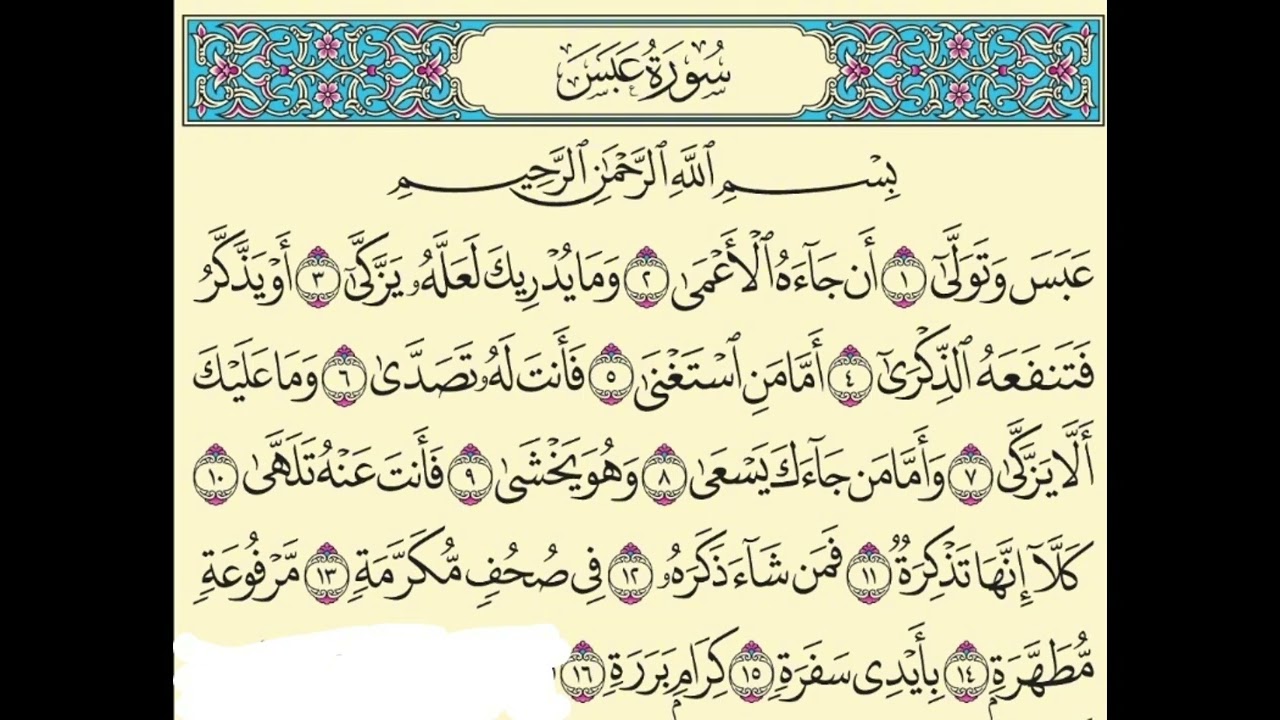 سُورَةُ عَبَسَ
بِسْمِ ٱللَّهِ ٱلرَّحْمَٰنِ ٱلرَّحِيمِ
عَبَسَ وَتَوَلَّىٰٓ ١ أَن جَآءَهُ ٱلْأَعْمَىٰ ٢ وَمَا يُدْرِيكَ لَعَلَّهُۥ يَزَّكَّىٰٓ ٣ أَوْ يَذَّكَّرُ
فَتَنفَعَهُ ٱلذِّكْرَىٰٓ ٤ أَمَّا مَنِ ٱسْتَغْنَىٰ ٥ فَأَنتَ لَهُۥ تَصَدَّىٰ ٦ وَمَا عَلَيْكَ
أَلَّا يَزَّكَّىٰ ٧ وَأَمَّا مَن جَآءَكَ يَسْعَىٰ ٨ وَهُوَ يَخْشَىٰ ٩ فَأَنتَ عَنْهُ تَلَهَّىٰ ١٠
كَلَّآ إِنَّهَا تَذْكِرَةٌ ١١ فَمَن شَآءَ ذَكَرَهُۥ ١٢ فِى صُحُفٍ مُّكَرَّمَةٍ ١٣ مَّرْفُوعَةٍ
مُّطَهَّرَةٍۭ ١٤ بِأَيْدِى سَفَرَةٍ ١٥ كِرَامٍۭ بَرَرَةٍ ١٦